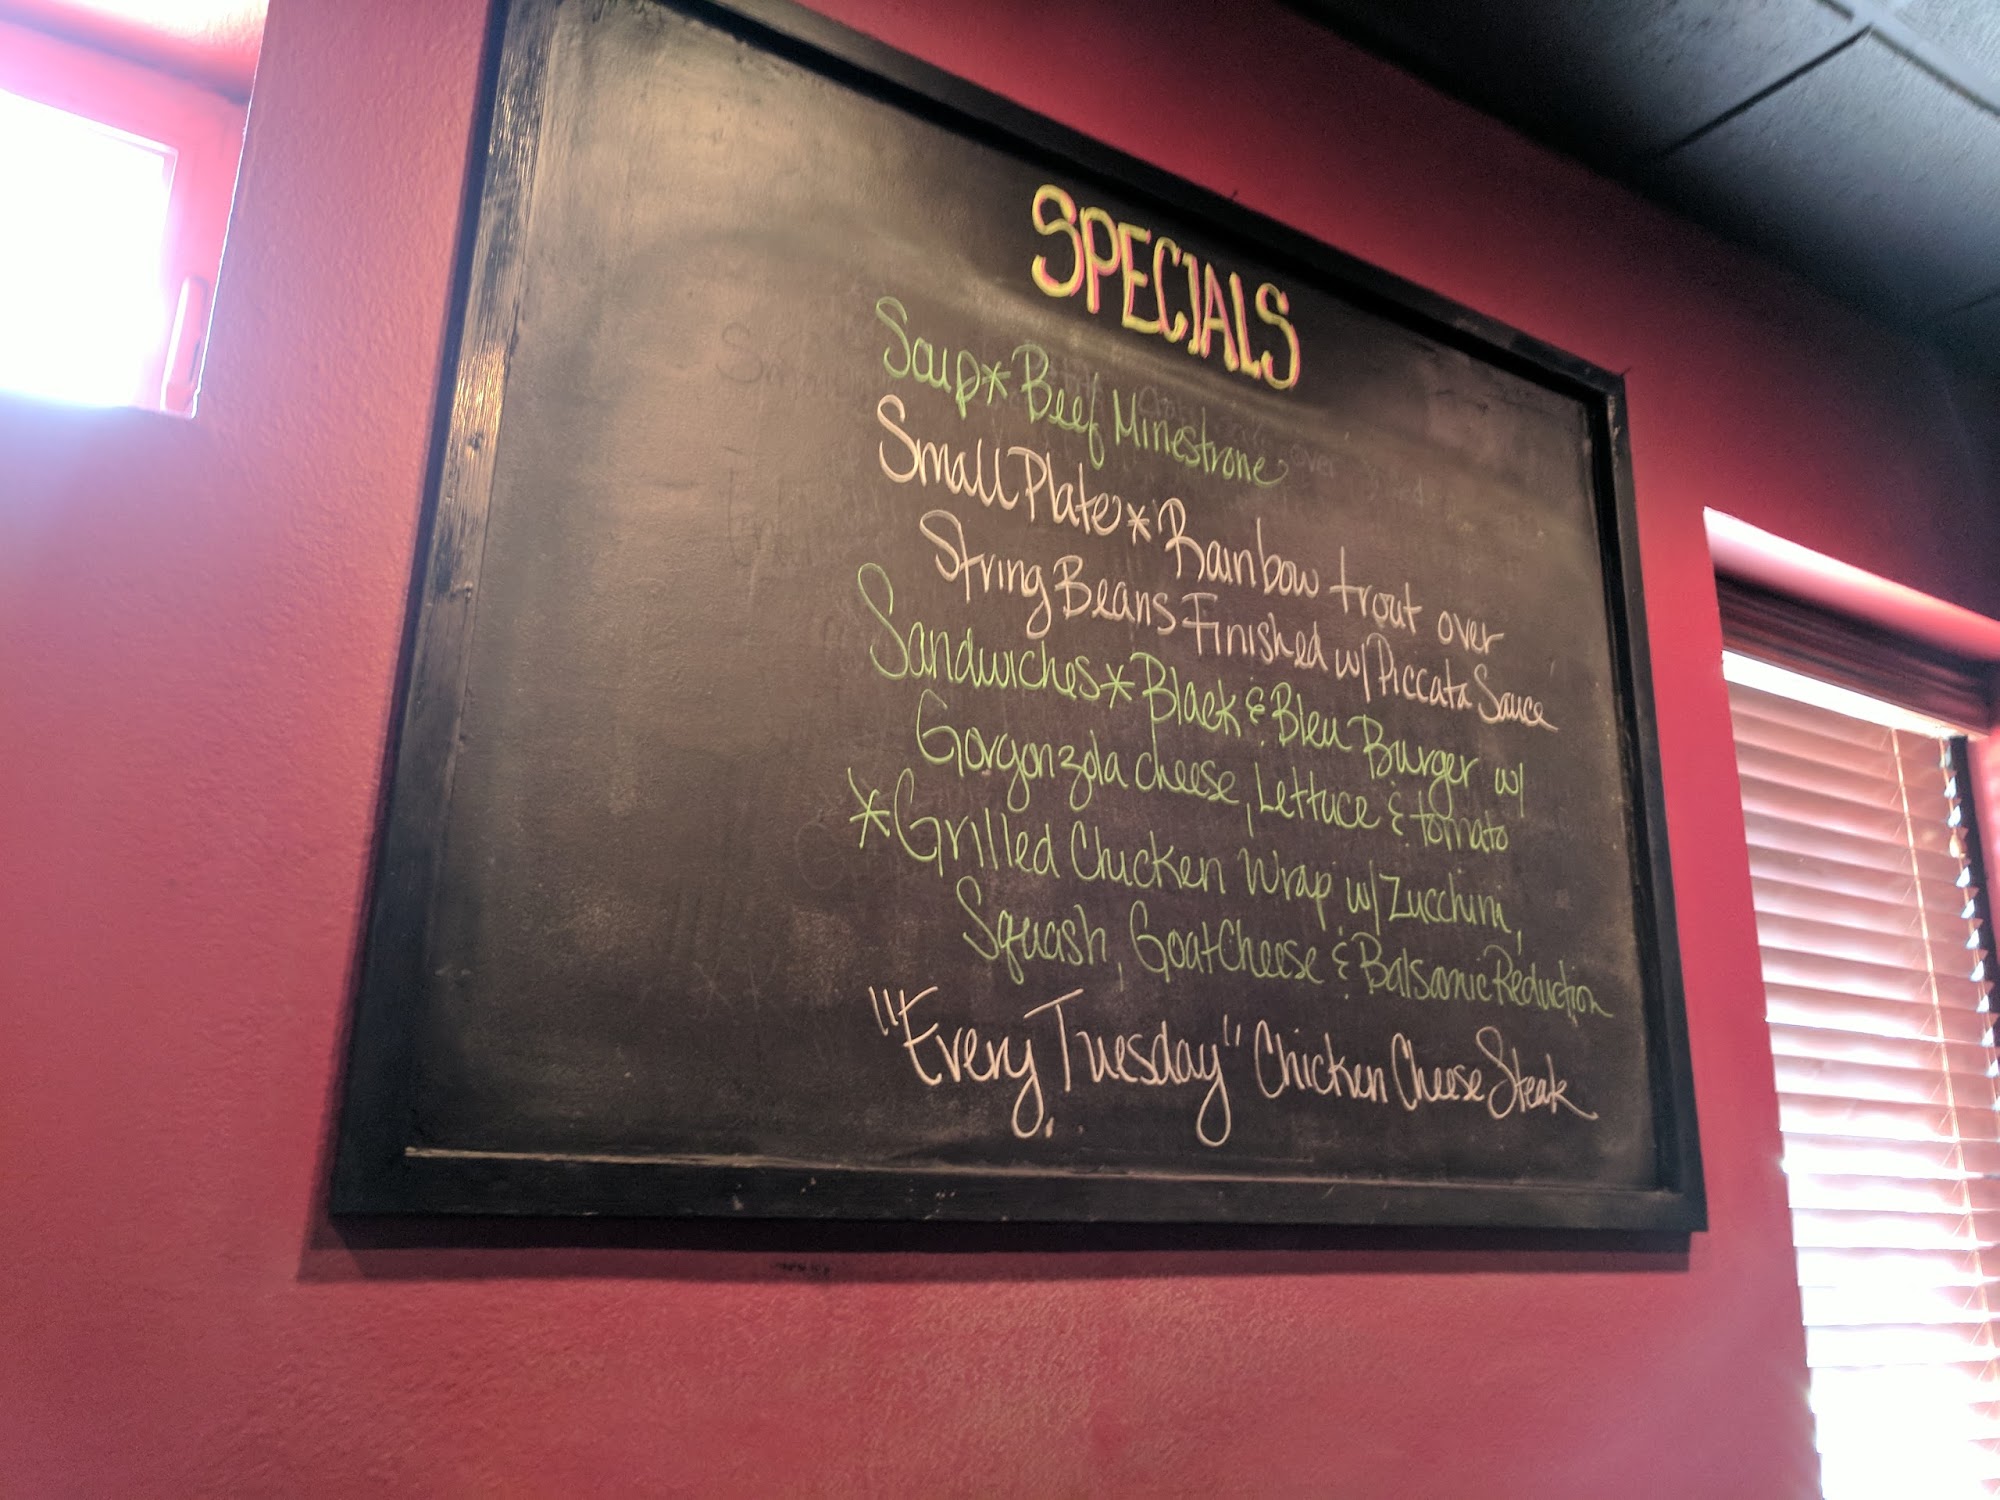 SPECIALS
Soup* Beef Minestrone
Small Plate* Rainbow trout over
String Beans Finished w/ Piccata Sauce
Sandwiches* Black & Bleu Burger w/
Gorgonzola cheese, Lettuce & tomato
*Grilled Chicken Wrap w/ Zucchini,
Squash, Goat Cheese & Balsamic Reduction
"Every Tuesday" Chicken Cheese Steak